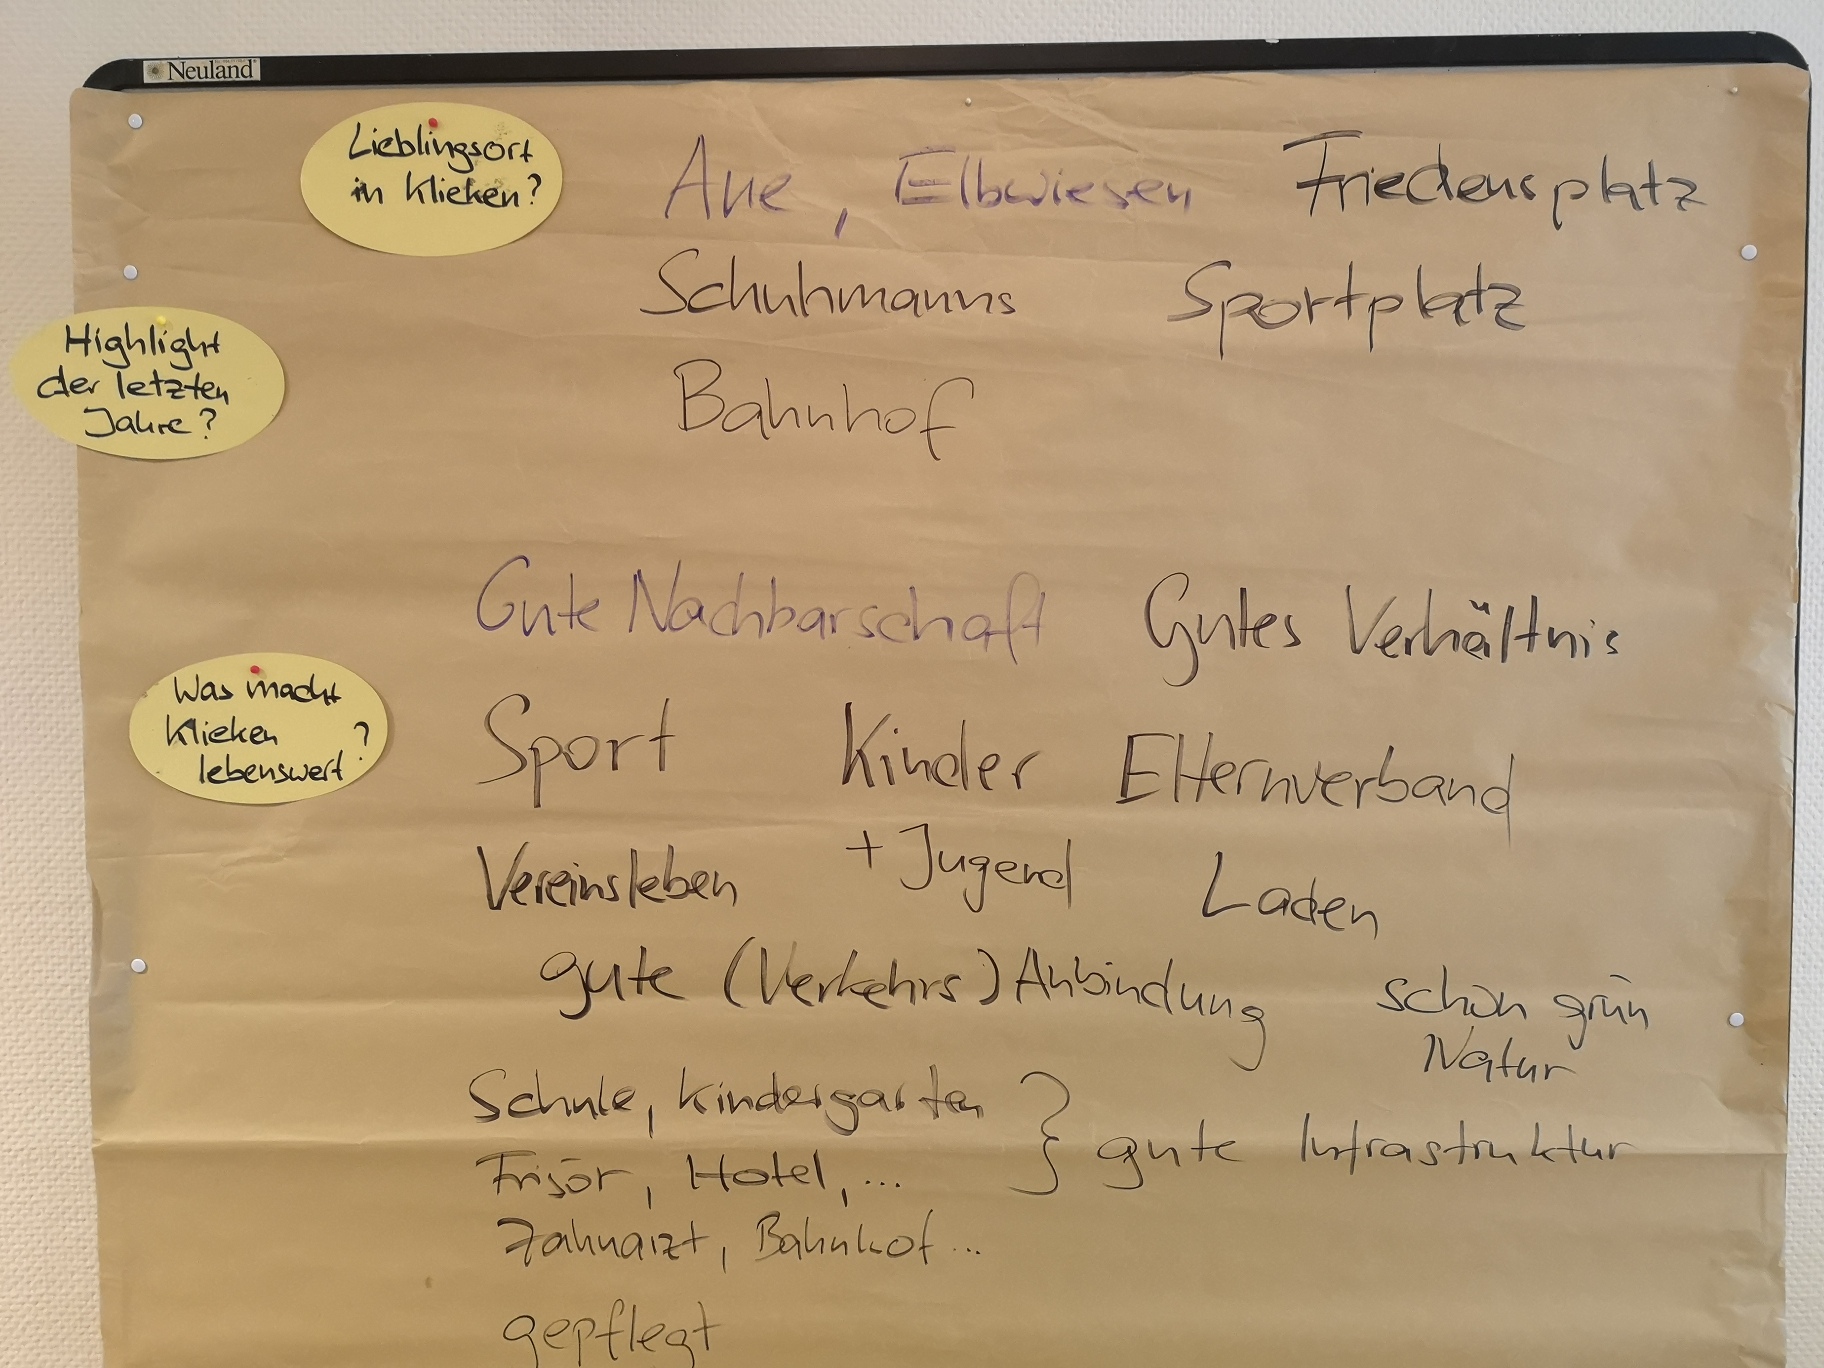 Neuland
Lieblingsort
in Klieken?
Aue, Elbwiesen Friedensplatz
Schuhmanns Sportplatz
Bahnhof
Highlight
der letzten
Jahre?
Gute Nachbarschaft Gutes Verhältnis
Was macht
Klieken ?
lebenswert
Sport Kinder Elternverband
Vereinsleben + Jugend Laden
gute (Verkehrs) Anbindung schön grün
Natur
Schule, Kindergarten } gute Infrastruktur
Frisör, Hotel, ...
Zahnarzt, Bahnhof ...
gepflegt